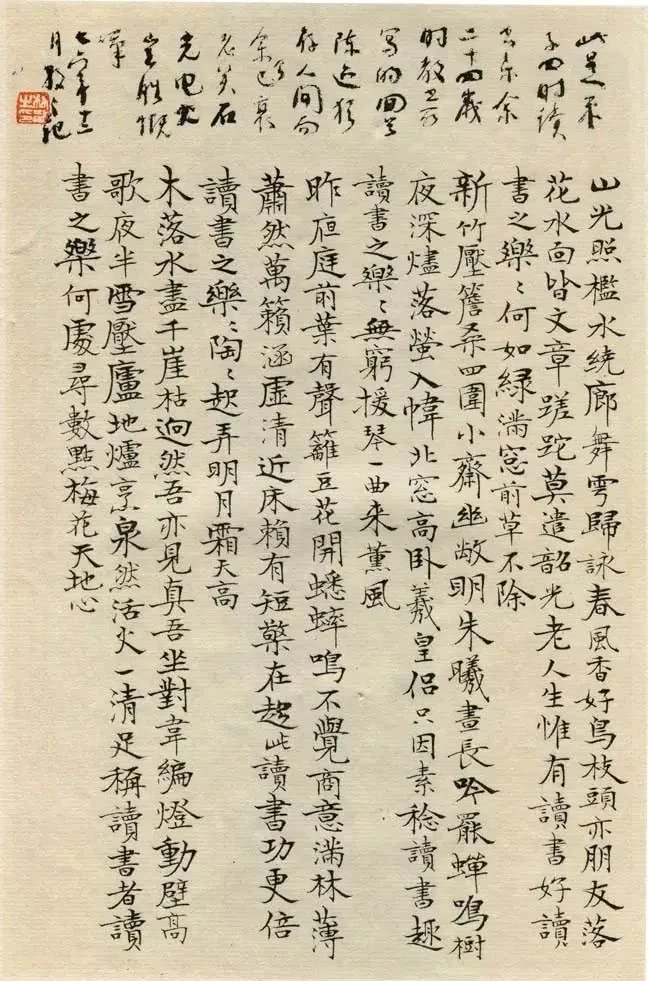 山光照檻水繞廊舞雩歸詠春風香好鳥枝頭亦朋友落
花水面皆文章蹉跎莫遣韶光老人生惟有讀書好讀
書之樂〻何如綠滿窓前草不除
新竹壓簷桑四圍小齋幽敞明朱曦晝長吟罷蟬鳴樹
夜深燼落螢入幃北窓高卧羲皇侣只因素稔讀書趣
讀書之樂〻無窮援琴一曲来薰風
昨夜庭前葉有聲籬豆花開蟋蟀鳴不覺商意滿林薄
蕭然萬籟涵虛清近床賴有短檠在趂此讀書功更倍
讀書之樂〻陶〻起弄明月霜天高
木落水盡千崖枯迥然吾亦見真吾坐對韋編燈動壁高
歌夜半雪壓廬地爐烹泉然活火一清足稱讀書者讀
書之樂何處尋數點梅花天地心
此是
子四时读
书乐余
二十四歲
时教
写的
陈迹猶
存人间而
余已衰
老矣石
光电火
岂胜慨
嘆
七六年十二
月記